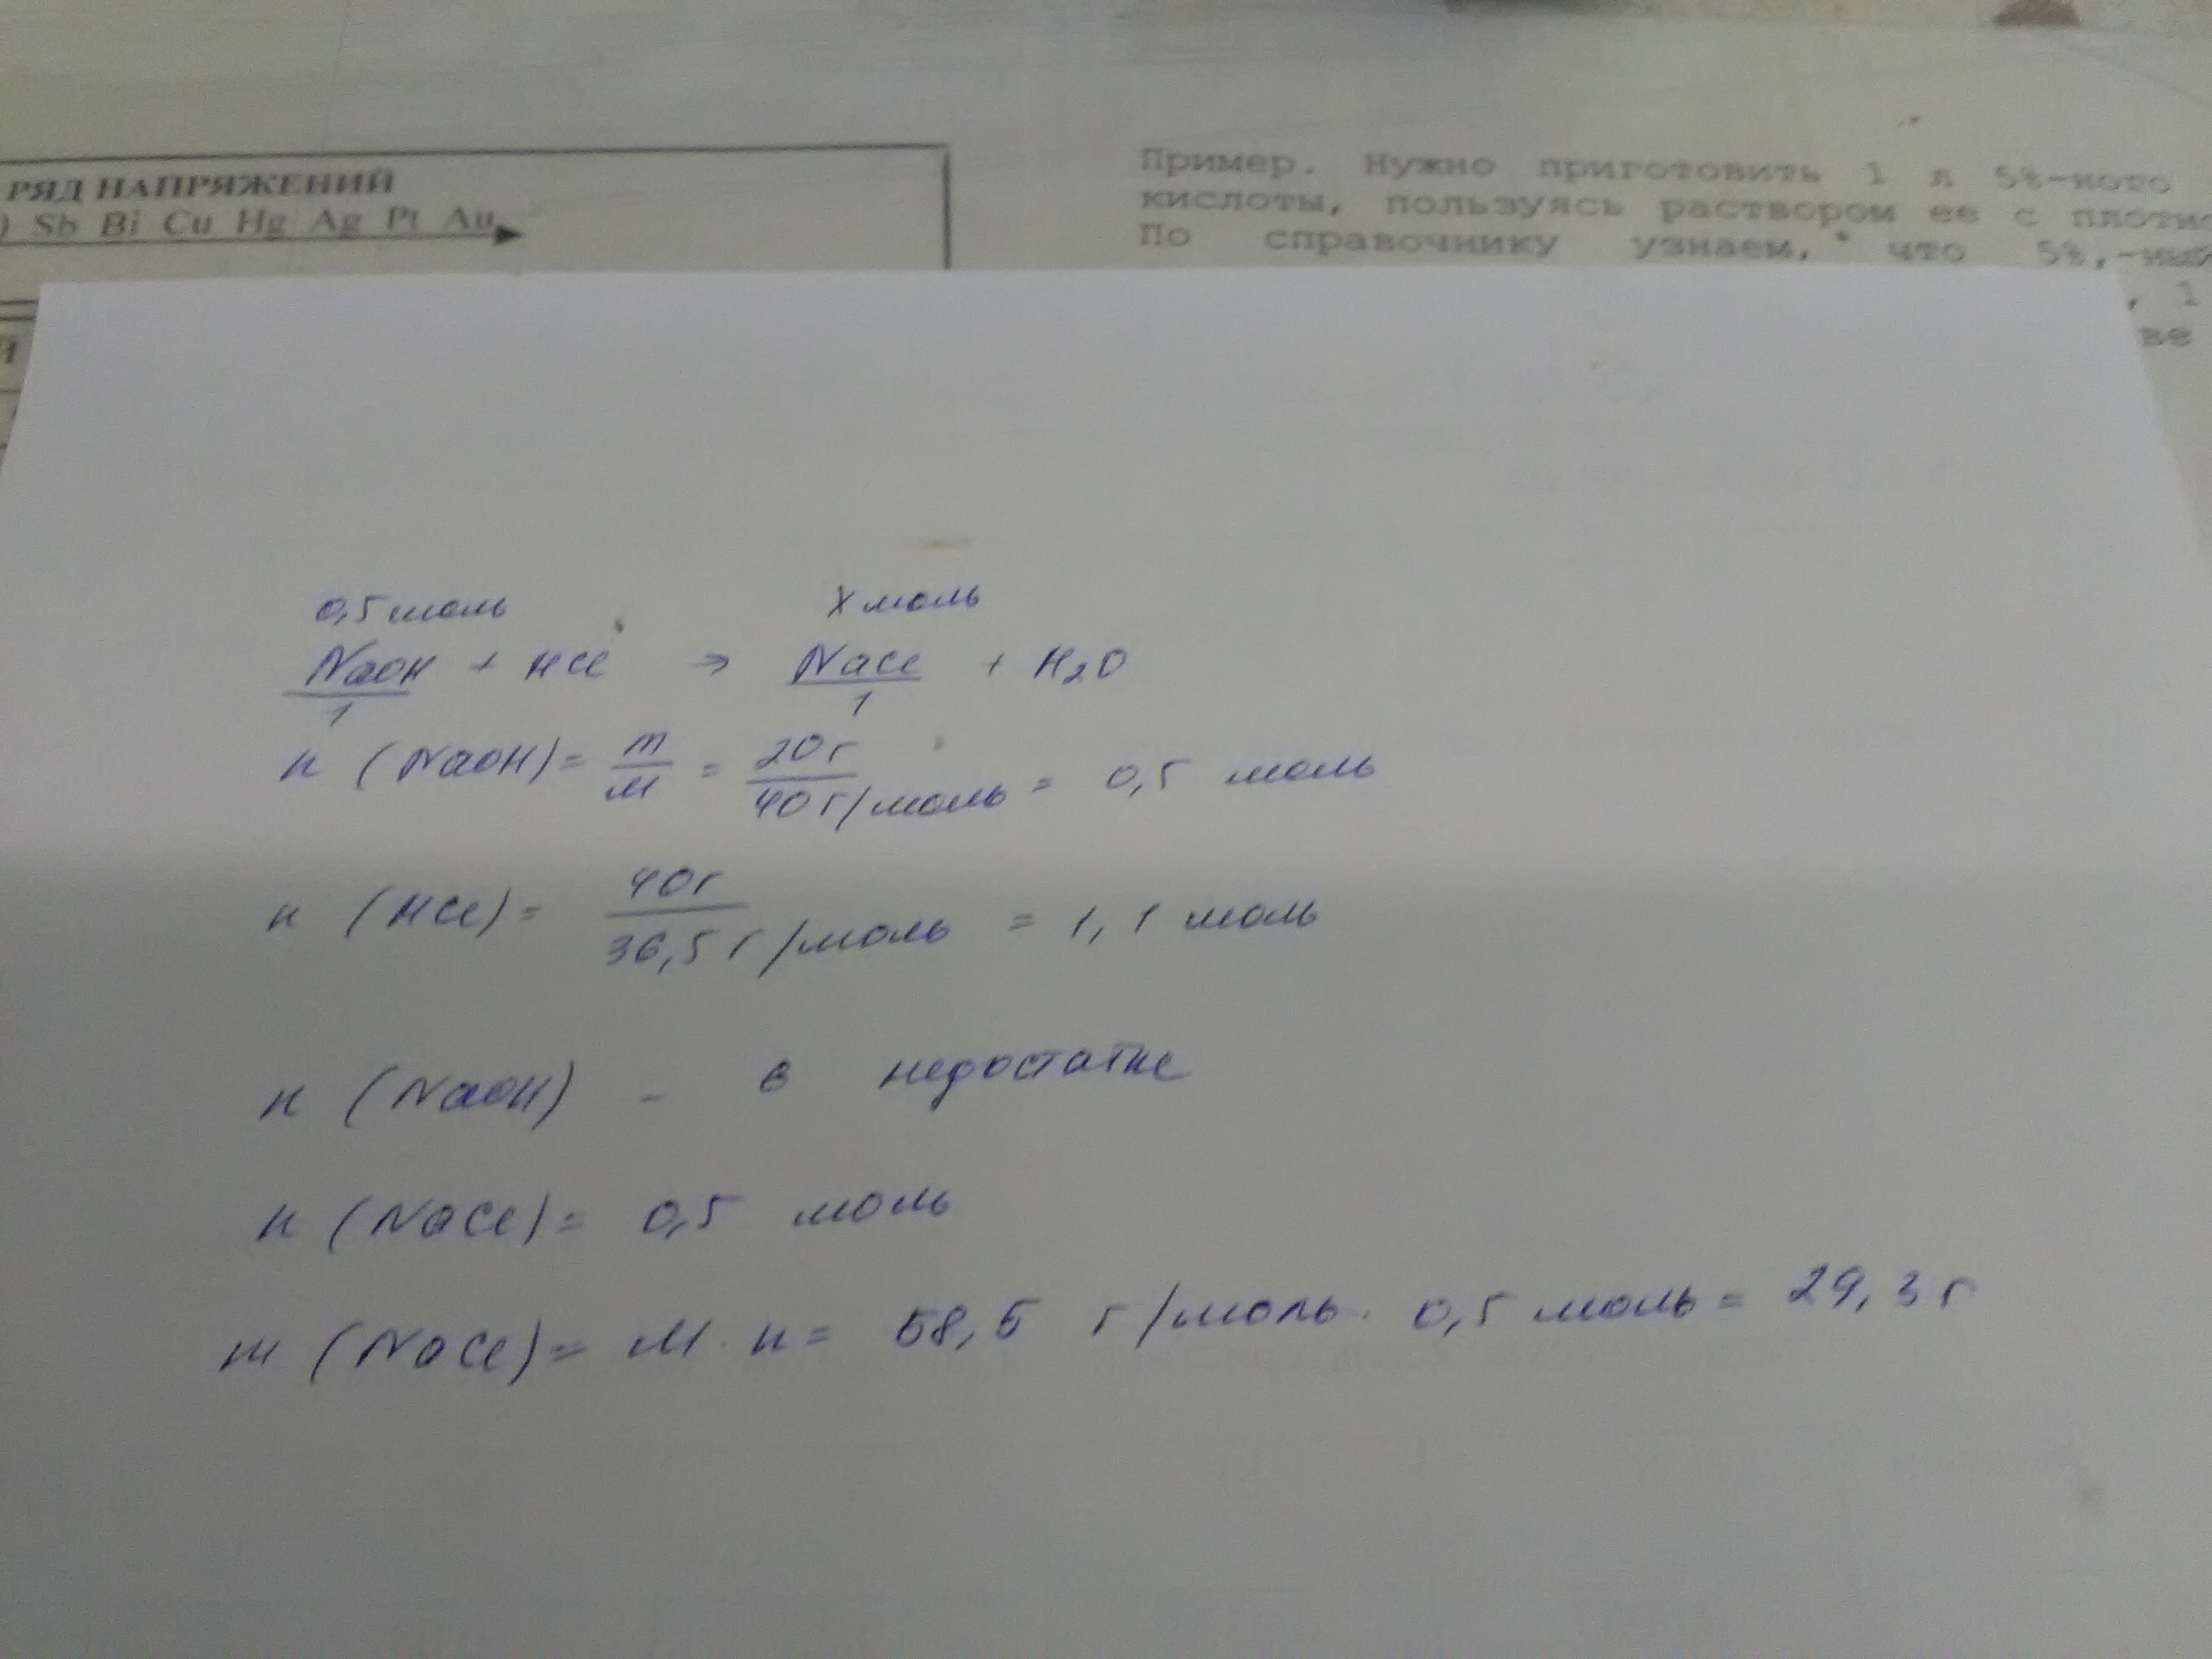 РЯД НАПРЯЖЕНИЙ
) Sb Bi Cu Hg Ag Pt Au
Пример. Нужно приготовить 1 л 5%-ного
кислоты, пользуясь раствором ее с плотн
По справочнику узнаем, что 5%,-ный
, 1
ве
0,5 моль X моль
NaOH + HCl → NaCl + H₂O
1 1
n (NaOH) = m/M = 20 г/40 г/моль = 0,5 моль
n (HCl) = 40 г/36,5 г/моль = 1,1 моль
n (NaOH) - в недостатке
n (NaCl) = 0,5 моль
m (NaCl) = M · n = 58,5 г/моль · 0,5 моль = 29,3 г